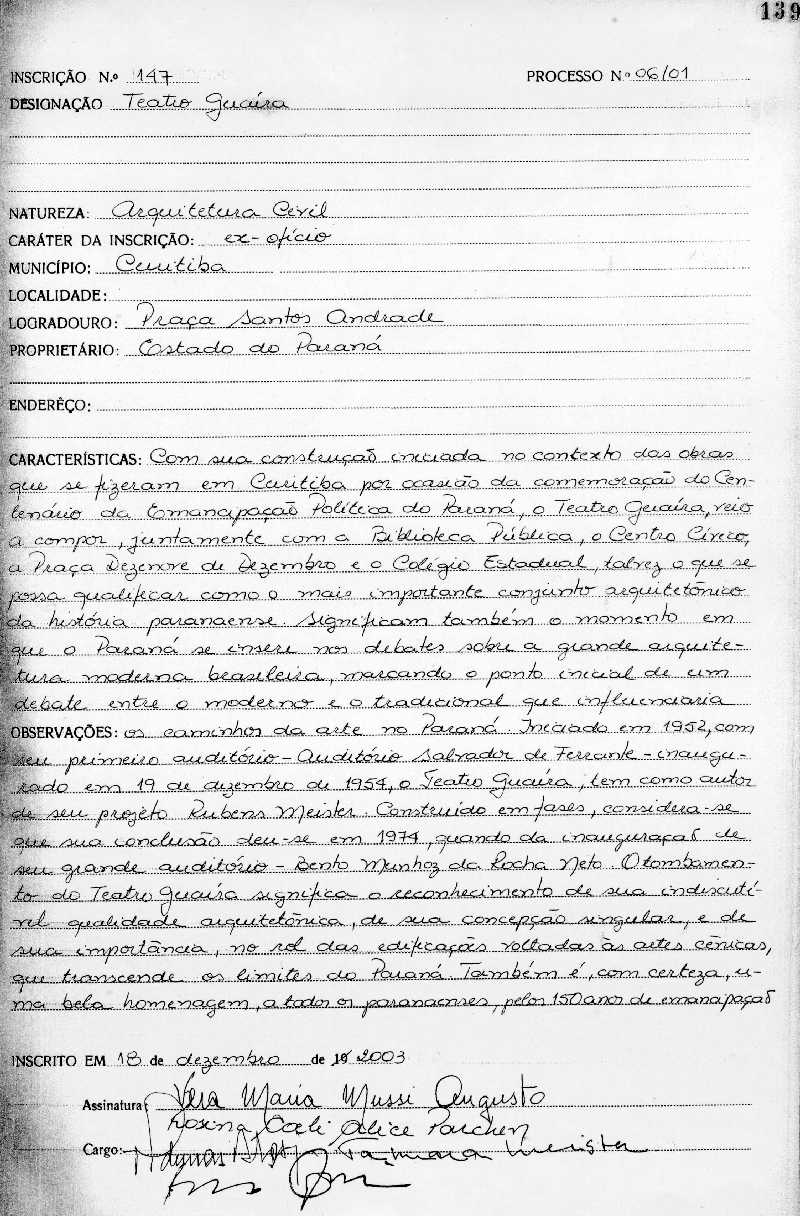 139
INSCRIÇÃO N.º 147 PROCESSO N.º 06/01
DESIGNAÇÃO Teatro Guaíra
NATUREZA: Arquitetura Civil
CARÁTER DA INSCRIÇÃO: ex-ofício
MUNICÍPIO: Curitiba
LOCALIDADE:
LOGRADOURO: Praça Santos Andrade
PROPRIETÁRIO: Estado do Paraná
ENDERÊÇO:
CARACTERÍSTICAS: Com sua construção iniciada no contexto das obras
que se fizeram em Curitiba por ocasião da comemoração do Cen-
tenário da Emancipação Política do Paraná, o Teatro Guaíra, veio
a compor, juntamente com a Biblioteca Pública, o Centro Cívico,
a Praça Dezenove de Dezembro e o Colégio Estadual, talvez o que se
possa qualificar como o mais importante conjunto arquitetônico
da história paranaense. Significam também o momento em
que o Paraná se insere nos debates sobre a grande arquite-
tura moderna brasileira, marcando o ponto inicial de um
debate entre o moderno e o tradicional que influenciaria
OBSERVAÇÕES: os caminhos da arte no Paraná. Iniciado em 1952, com
seu primeiro auditório - Auditório Salvador de Ferrante - inaugu-
rado em 19 de dezembro de 1954, o Teatro Guaíra, tem como autor
de seu projeto Rubens Meister. Construído em fases, considera-se
que sua conclusão deu-se em 1974, quando da inauguração de
seu grande auditório - Bento Munhoz da Rocha Neto. O tombamen-
to do Teatro Guaíra significa o reconhecimento de sua indiscutí-
vel qualidade arquitetônica, de sua concepção singular, e de
sua importância, no rol das edificações voltadas às artes cênicas,
que transcende os limites do Paraná. Também é, com certeza, u-
ma bela homenagem, a todos os paranaenses, pelos 150 anos de emancipação
INSCRITO EM 18 de dezembro de 19 2003
Assinatura: Vera Maria Mussi Augusto
Rosina Alice Parchen
Cargo: Meister